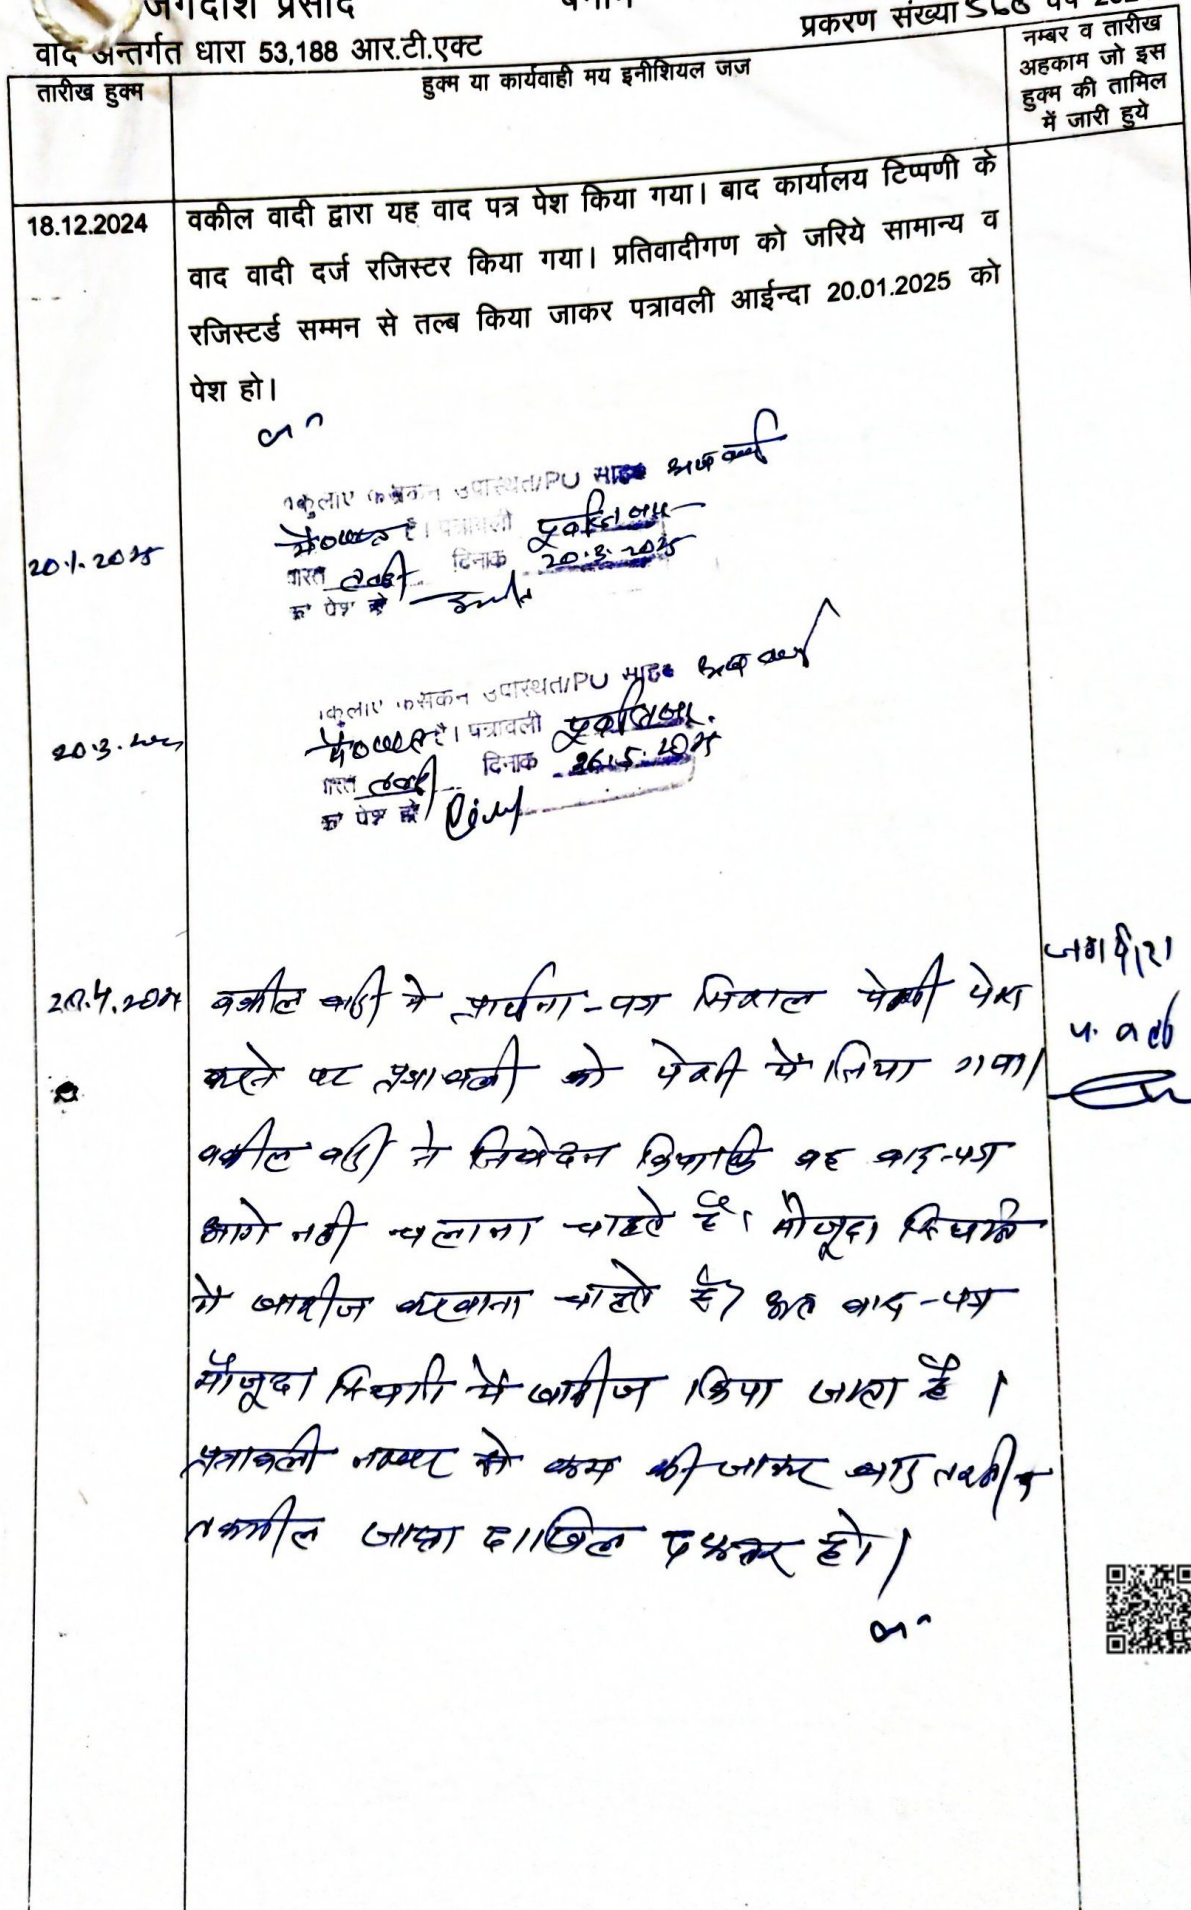 जगदीश प्रसाद
प्रकरण संख्या 568
वाद अन्तर्गत धारा 53,188 आर.टी.एक्ट
तारीख हुक्म
हुक्म या कार्यवाही मय इनीशियल जज
नम्बर व तारीख
अहकाम जो इस
हुक्म की तामिल
में जारी हुये
18.12.2024
वकील वादी द्वारा यह वाद पत्र पेश किया गया। बाद कार्यालय टिप्पणी के
वाद वादी दर्ज रजिस्टर किया गया। प्रतिवादीगण को जरिये सामान्य व
रजिस्टर्ड सम्मन से तल्ब किया जाकर पत्रावली आईन्दा 20.01.2025 को
पेश हो।
उपस्थित/PO
20.1.2025
है। पत्रावली पूर्वानुसार
दिनांक 20.3.2025
को पेश हो
उपस्थित/PO
20.3.2025
है। पत्रावली पूर्वानुसार
दिनांक 26.5.2025
को पेश हो
जगदीश
वकील वादी ने प्रार्थना-पत्र मिसल पेशी पेश
करने पर पत्रावली को पेशी में लिया गया।
वकील वादी ने निवेदन किया कि वह वाद-पत्र
आगे नही चलाना चाहते है। मौजूदा स्थिति
में खारीज करवाना चाहते है। अतः वाद-पत्र
मौजूदा स्थिति में खारीज किया जाता है।
पत्रावली नम्बर से कम की जाकर बाद
तकमील जाप्ता दाखिल दफ्तर हो।